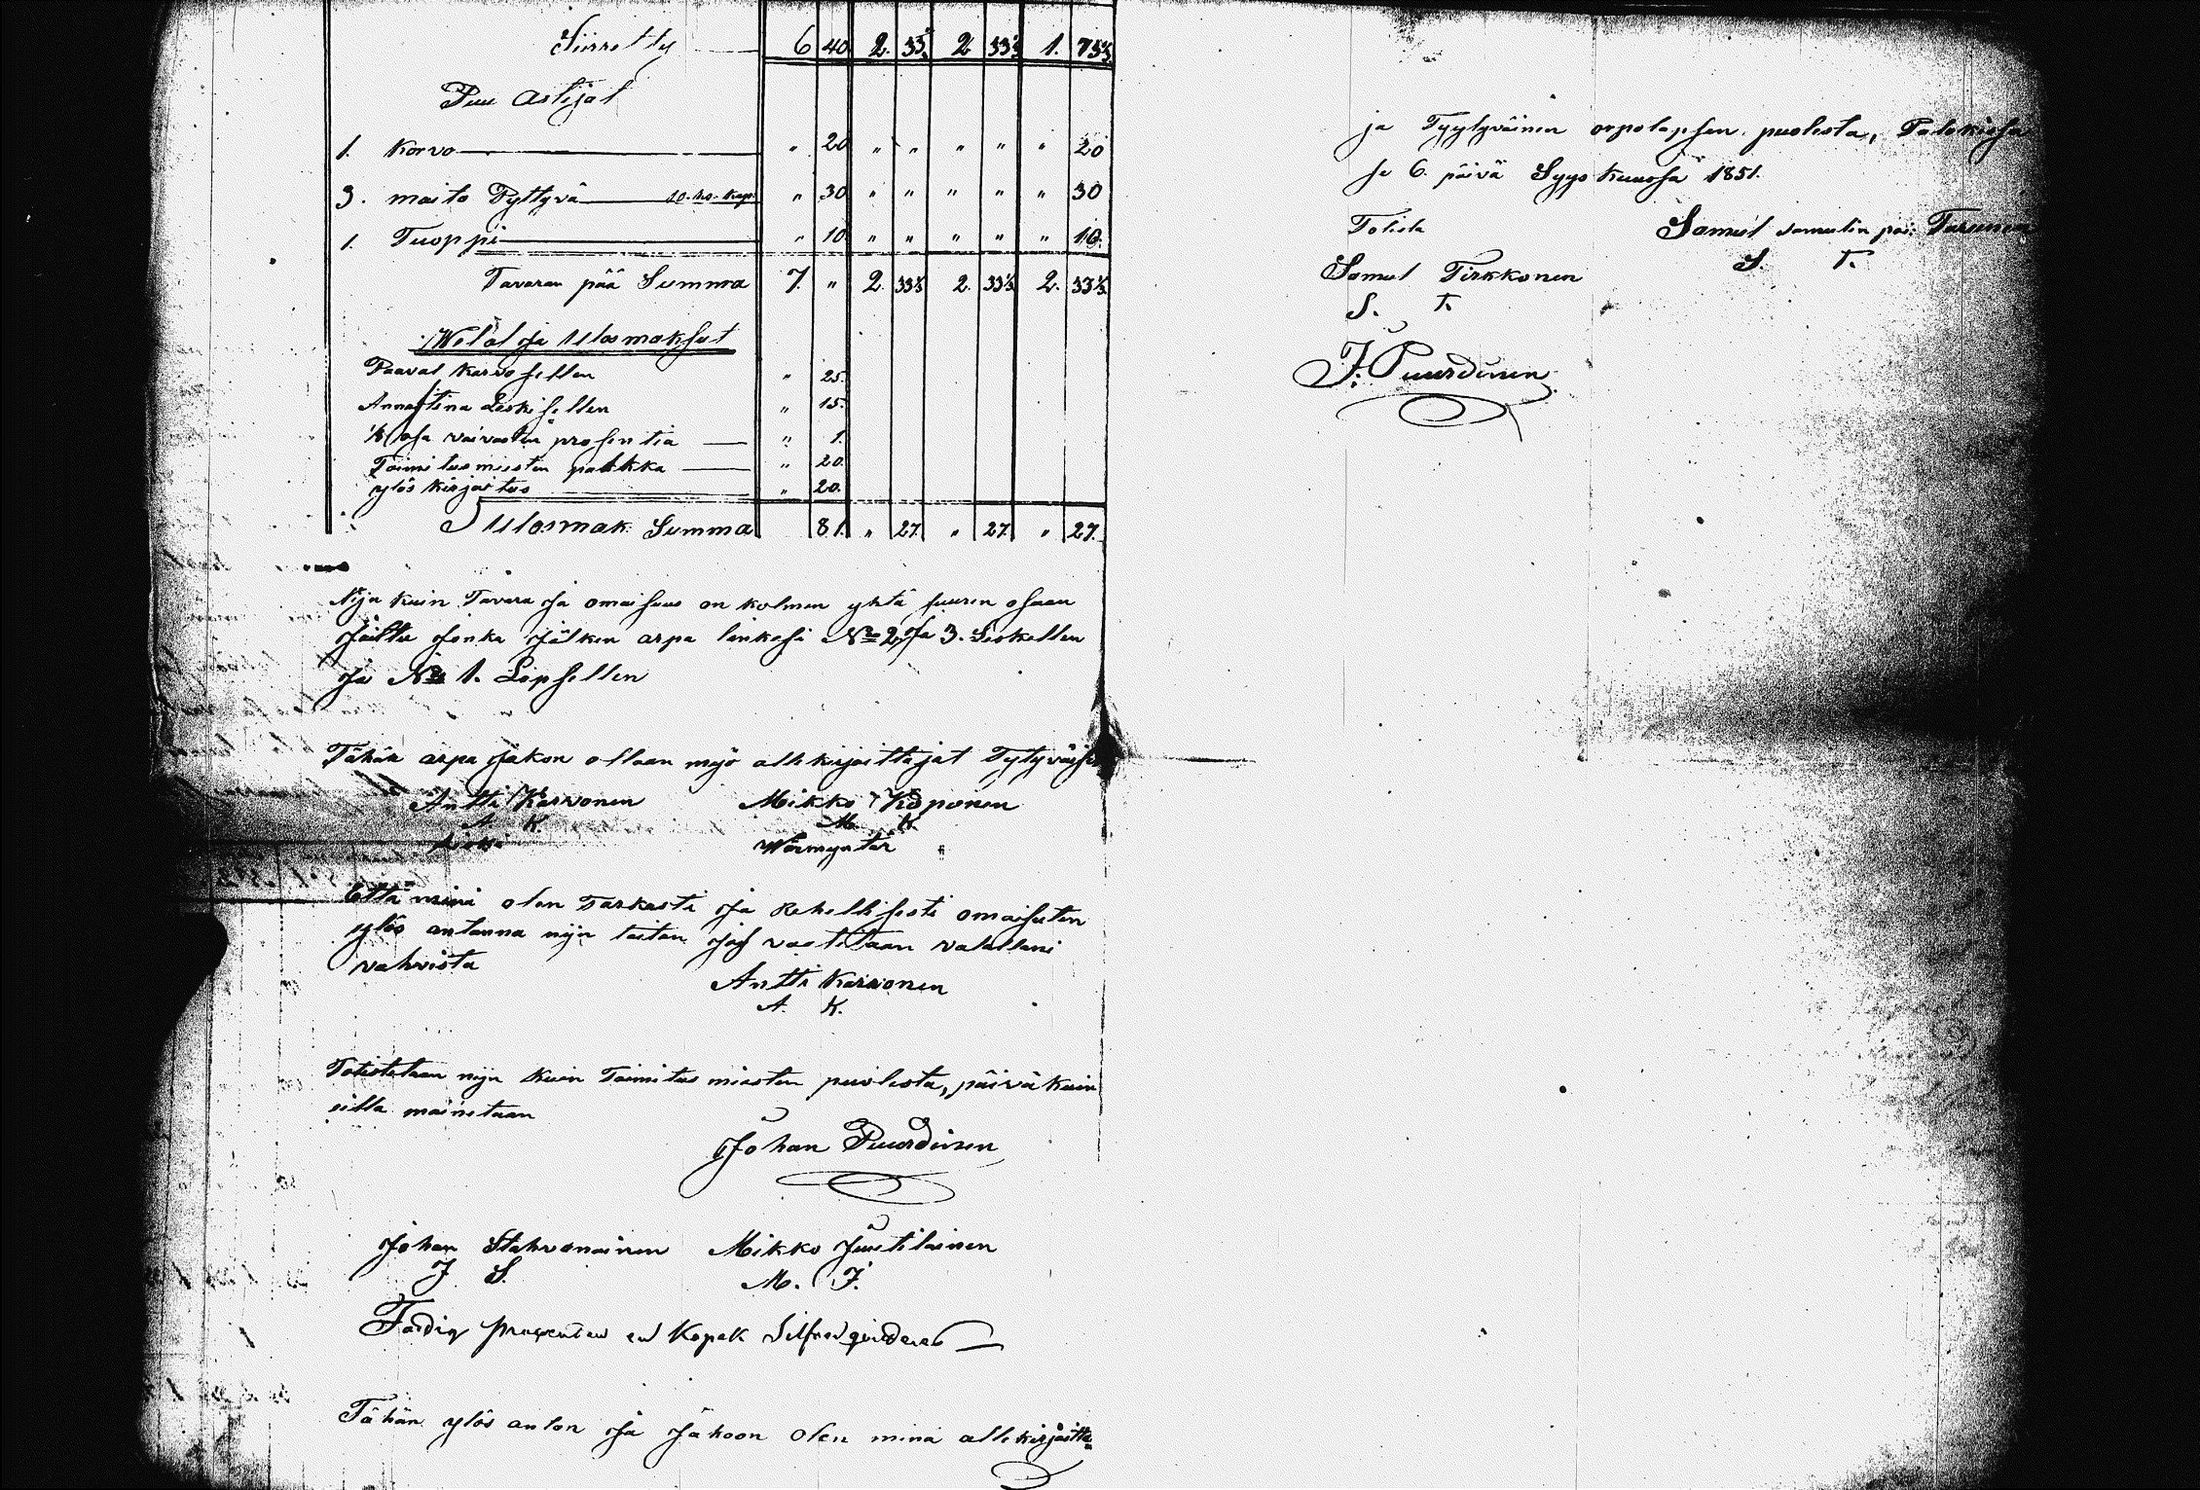 Siirretty 6 40 2. 33⅓ 2 33⅓ 1. 73⅓
Puu Astijat
1. Korvo " 20 " " " " " 20
3. maito Pyttyvä 10. ho. Kap. " 30 " " " " " 30
1. Tuoppi " 10 " " " " " 10.
Tavaran pää Summa 7. " 2. 33⅓ 2. 33⅓ 2. 33⅓
Welat ja Ulosmaksut
Paaval Karvosellen " 25.
Annastina Leskisellen " 15.
⅛ osa vaivasten prosentia " 1.
Toimitusmiesten palkka " 20.
ylös kirjoitus " 20.
Ulosmak. Summa 81. " 27. " 27. " 27.
Nijn kuin Tavara ja omaisuus on kolmen yhtä suuren osaan
jaittu jonka jälken arpa linkesi No 2 ja 3. Leskellen
ja No 1. Lapsellen
Tähän arpa jakon ollaan myö allekirjoittajat Tytyväiset
Antti Karvonen Mikko Koponen
A. K. M. K.
Leski Wörmyntär
Että minä olen Tarkasti ja Rehellisesti omaisuten
ylös antanna nijn taitan jos vaatitaan valallani
vahvista
Antti Karvonen
A. K.
Totistetaan nijn kuin Toimitusmiesten puolesta, päivä kuin
eillä mainitaan
Johan Puurdinen
Johan Stahvanainen Mikko Juutilainen
J S. M. J.
Fattig procenten en Kopek Silfver qvitteras
Tähän ylös anton ja jakoon olen minä allekirjoitta=
ja Tyytyväinen orpolapsen puolesta,
se 6. päivä Syyskuussa 1851.
Totista Samuel Samulin poi:
Samuel Tirkkonen S. T.
S. T.
J. Puurdinen